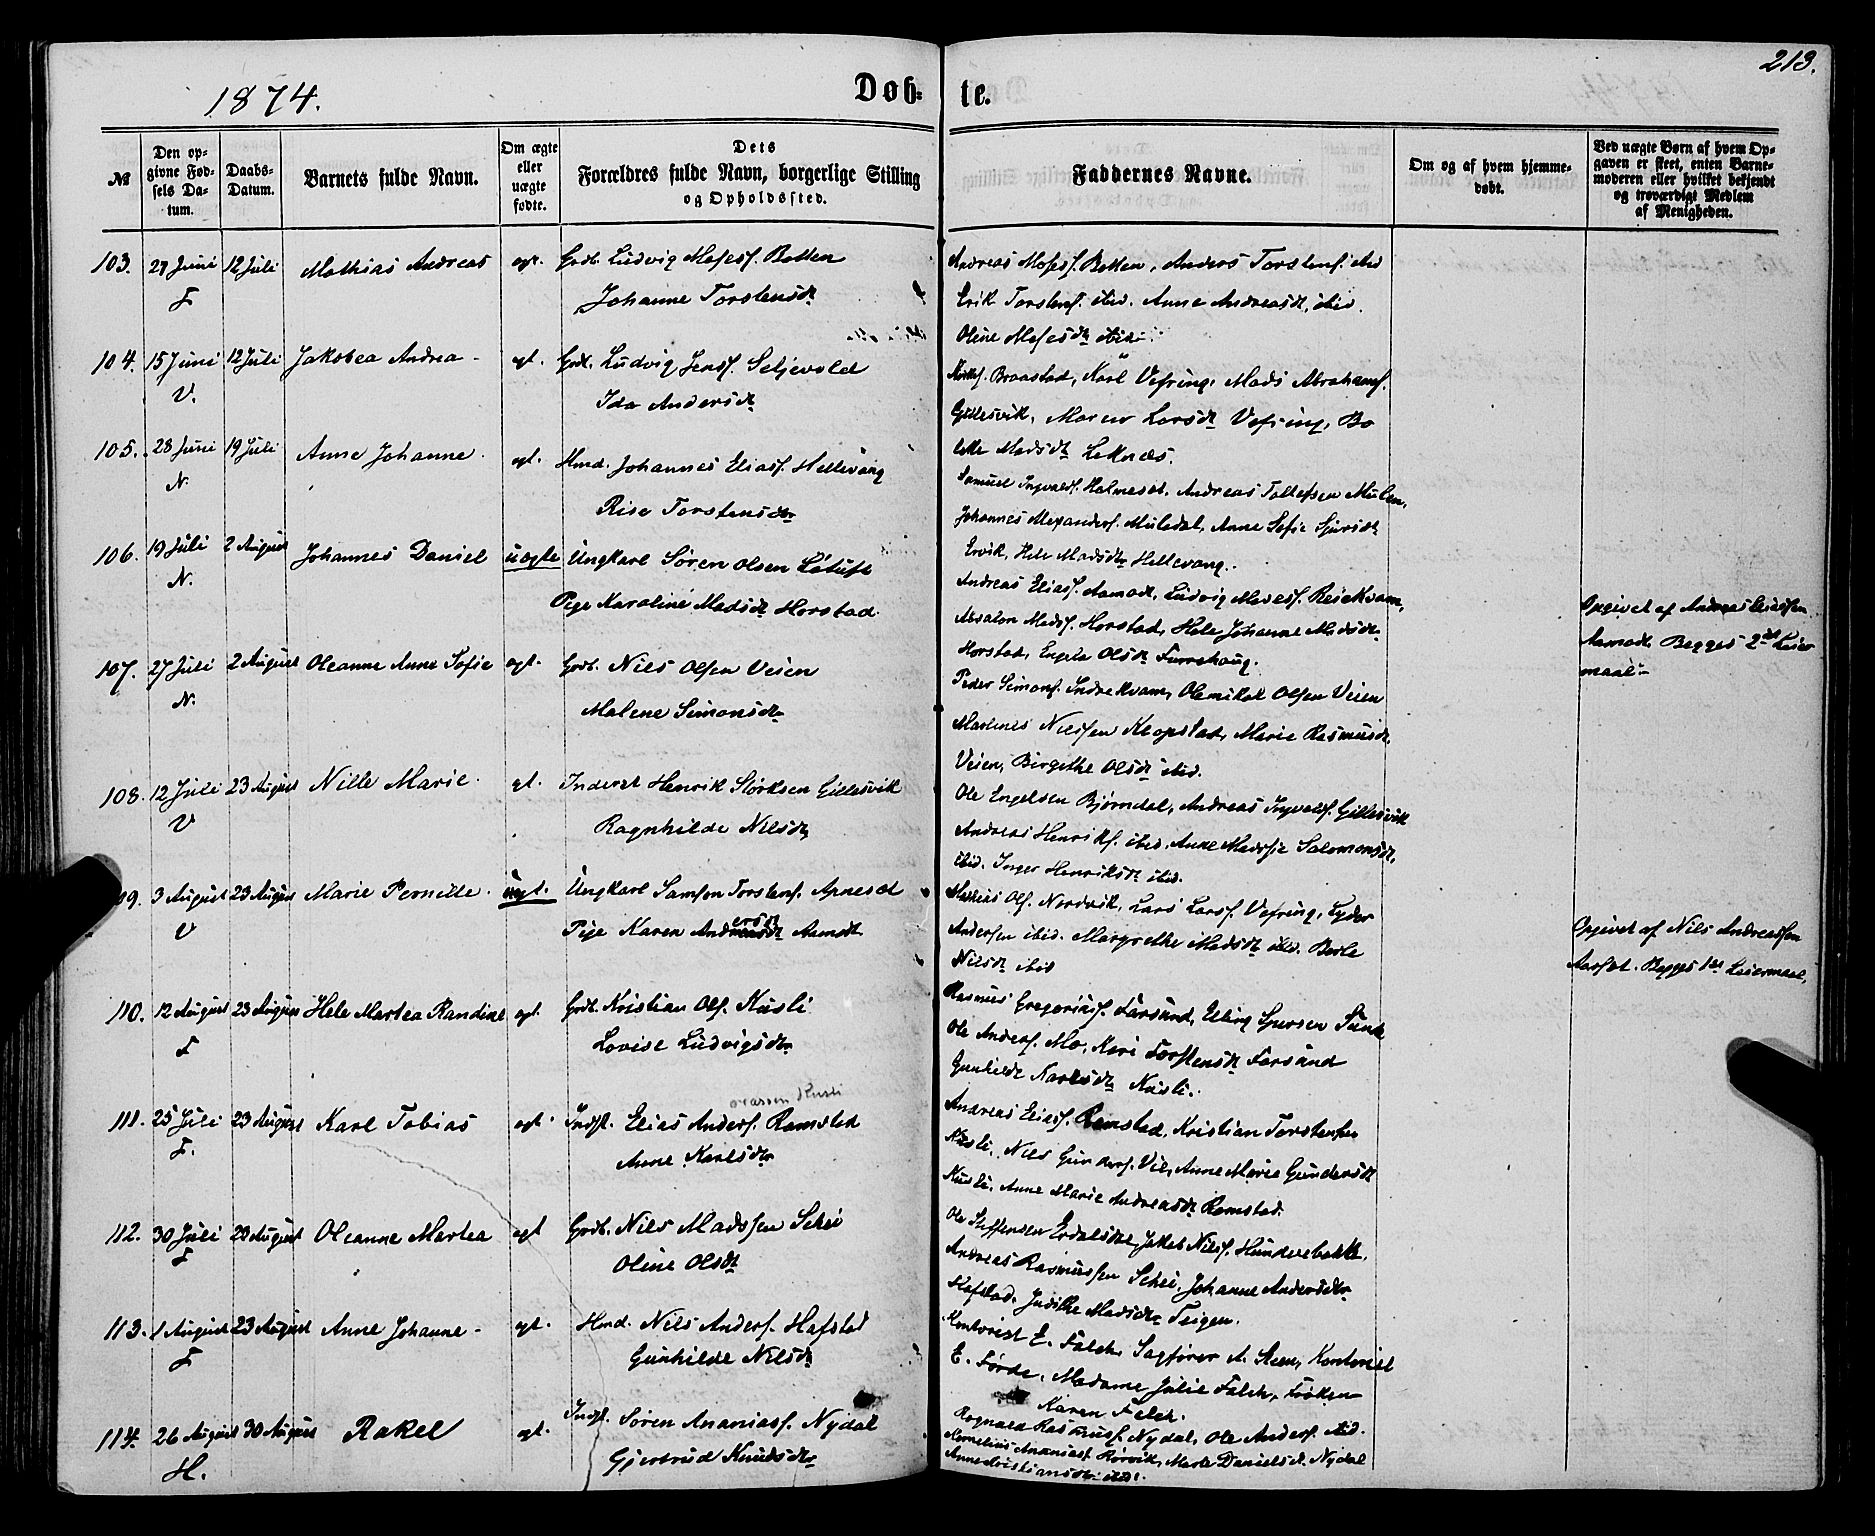 1874.
Døb-
te.
213.
№
Den op-
givne Fød-
sels Da-
tum.
Daabs-
Datum.
Barnets fulde Navn.
Om ægte
eller
uægte
fødte.
Dets
Forældres fulde Navn, borgerlige Stilling
og Opholdssted.
Faddernes Navne.
Om og af hvem hjemme-
døbt.
Ved uægte Børn af hvem Op-
gaven er skeet, enten Barne-
moderen eller hvilket bekjendt
og troværdigt Medlem
af Menigheden.
103. 27 Juni 12 Juli Mathias Andreas egt. Grdb. Ludvig Mosesf. Botten
F Johanne Torstensdt
Andreas Mosesf. Botten, Anders Torstenf. ibid
Erik Torstenf. ibid. Anne Andreasdt, ibid.
Oline Mosesdt ibid.
104. 15 Juni 12 Juli Jakobea Andrea - egt. Grdb. Ludvig Jensf. Seljevold
V. Ida Andersdt
Braastad, Karl Vefring, Mads Abrahamf.
Gillesvik, Maren Larsdt Vefring, Bo
lette Madsdt Leknæs.
105. 28 Juni 19 Juli Anne Johanne. egt. Hmd. Johannes Eliasf. Hellevang
N. Rise Torstensdtr
Samuel Ingvaldf. Holmeset, Andreas Tollefsen Mulen,
Johannes Alexanderf. Muledal, Anne Sofie Sjursdt
Ervik, Hele Madsdtr Hellevang.
106. 19 Juli 2 August Johannes Daniel uægte Ungkarl Søren Olsen Løtuft
N. Pige Karoline Madsdt Horstad.
Andreas Eliasf. Aamodt, Ludvig Mosesf. Reiekvam,
Absalon Madsf. Horstad, Hele Johanne Madsdt
Horstad, Engele Olsdt Furrehaug.
Opgivet af Andreas Eliassen
Aamodt. Begges 2det Leier
maal.
107. 27 Juli 2 August Oleanne Anne Sofie egt. Grdb. Nils Olsen Veien
N. Malene Simonsdtr
Peder Simonf. Indrekvam, Ole mikal Olsen Veien
Martines Nilssen Klopstad, Marie Rasmusdt.
Veien, Birgithe Olsdt ibid.
108. 12 Juli 23 August Nille Marie. egt. Inderst Henrik Størksen Gillesvik
V Ragnhilde Nilsdt
Ole Engelsen Bjørndal, Andreas Ingvaldf. Gillesvik
Andreas Henrikf. ibid, Anne Madssie Salomonsdt,
ibid. Inger Henriksdt ibid.
109. 3 August 23 August Marie Pernille. uegt. Ungkarl Samson Torstenf. Apneset
V Pige Karen Andersdt Aamodt
Mathias Olf. Nordvik, Lars Larsf. Vefring, Lyder
Andersen ibid. Margrethe Madsdt ibid. Berle
Nilsdt ibid
Opgivet af Nils Andreassen
Aarset. Begges 1ste Leiermaal.
110. 12 August 23 August Hele Martea Randine egt. Grdb. Kristian Olf. Kusli
F Lovise Ludvigsdtr
Rasmus Gregoriusf. Farsund, Elling Sjursen Sunde
Ole Anderf. Mo, Kari Torstensdt Farsund
Gunhildt Karlsdt Kusli.
111. 25 Juli 23 August Karl Tobias egt. Indst. Elias Anderf. Ramstad
F. Anne Karlsdtr
Andreas Eliasf. Ramstad, Kristian Torstensen
Kusli, Nils Gunderf. Vie, Anne Marie Gundersdt
Kusli, Anne Marie Andreasdt Ramstad.
112. 30 Juli 23 August Oleanne Martea egt Grdb. Nils Madssen Schei
F Oline Olsdt
Ole Steffensen Erdalsdal, Jakob Nilsf. Hundvebakk.
Andreas Rasmussen Schei, Johanne Andersdtr
Hafstad, Judithe Madsdtr Teigen.
113. 1 August 23 August Anne Johanne - egt. Hmd. Nils Anderf. Hafstad
F Gunhilde Nilsdt
Kontorist E. Falch, Sagfører A. Steen, Kontorist
E. Førde, Madame Julie Falch, Frøken
Karen Falch.
114. 26 August 30 August Rakel egt. Indst. Søren Ananiasf. Nydal
H. Gjertrud Knudsdtr
Ragnald Rasmusf. Nydal, Ole Anderf. ibid.
Kornelius Ananiasf. Rørvik, Marte Danielsdt. Nydal
Anne Kristiansdtr ibid.